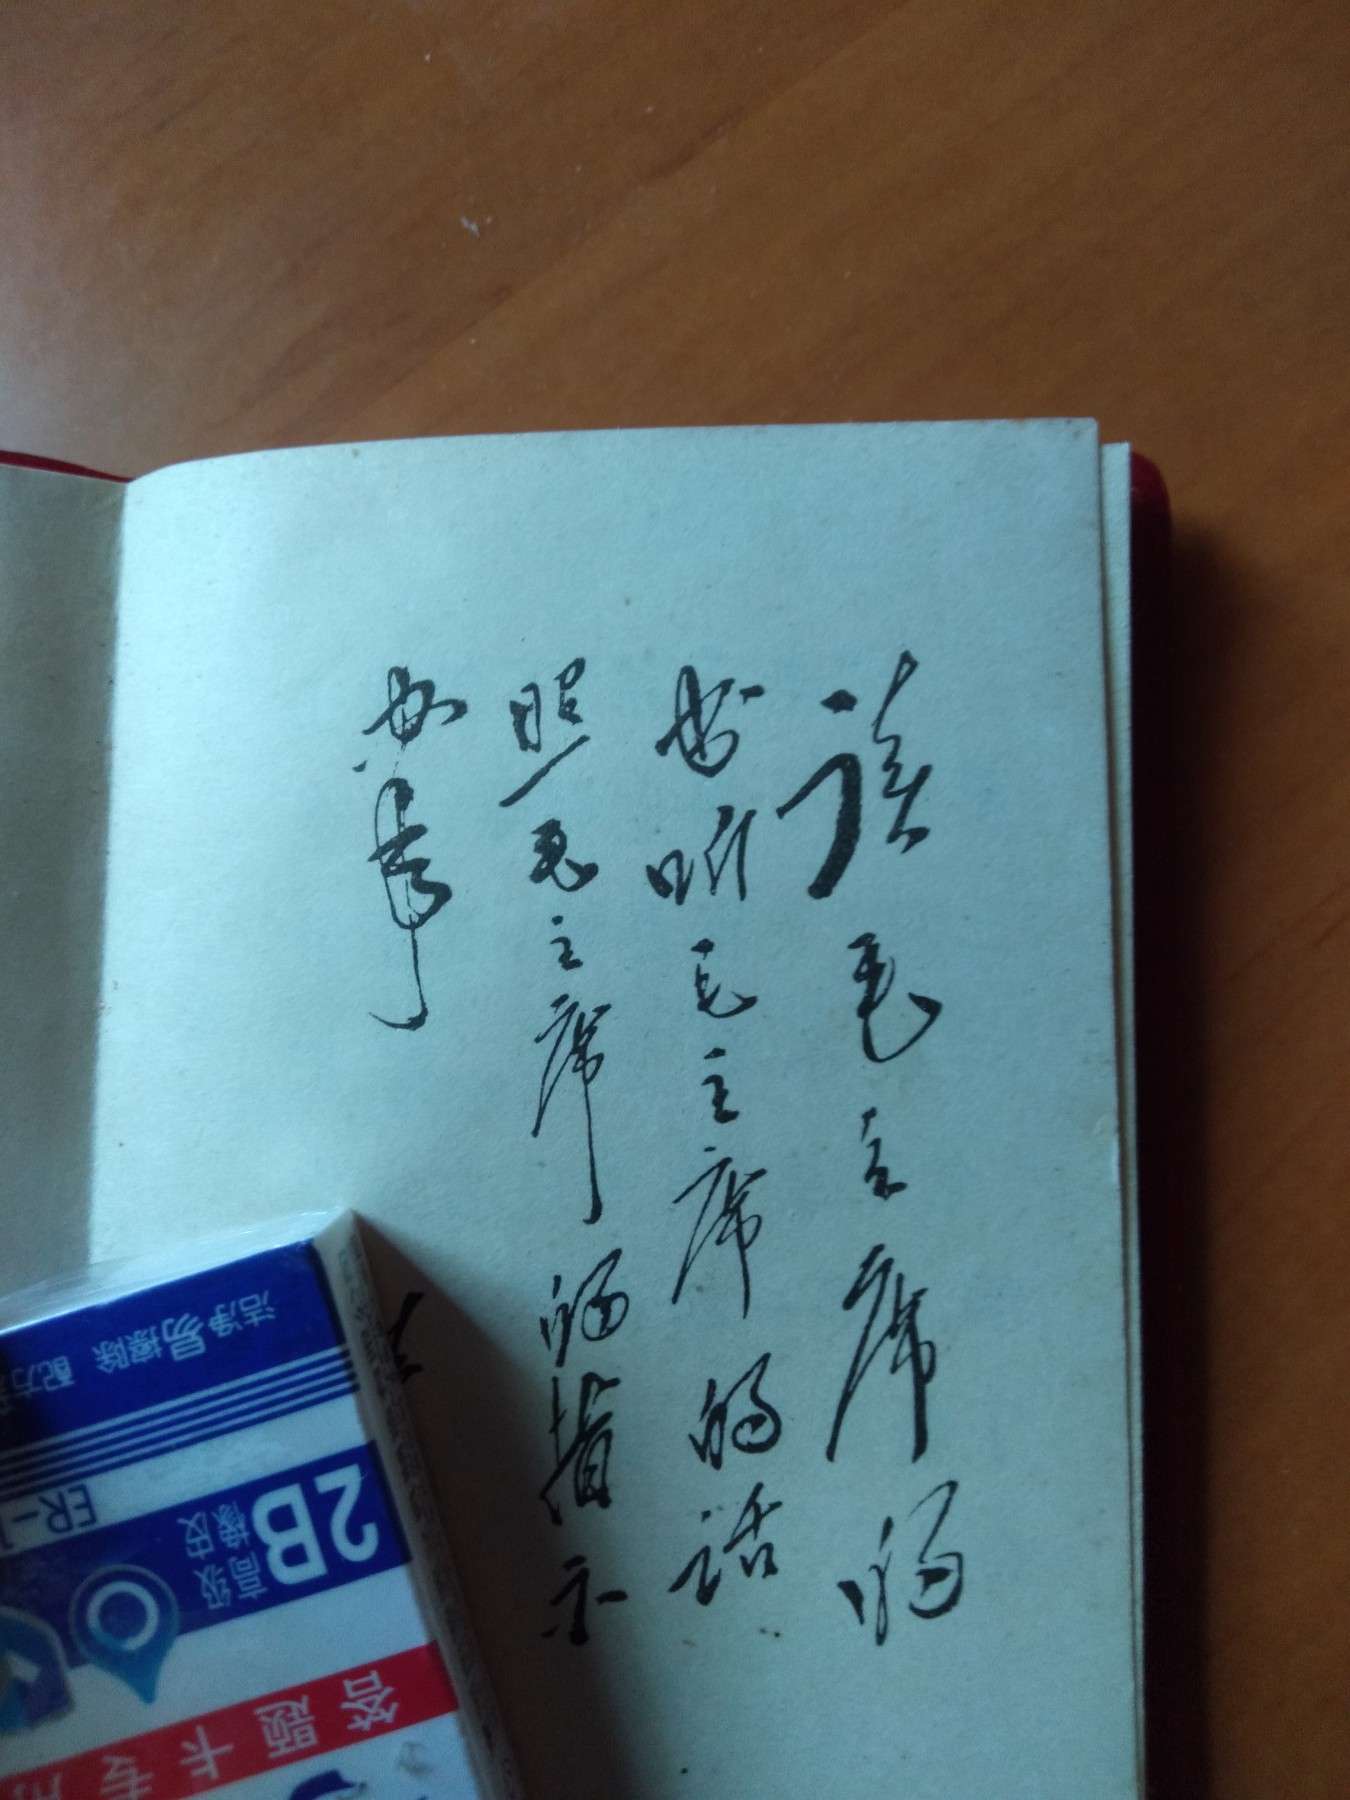 读毛主席的
书听毛主席的话
照毛主席的指示
办事
洁净易擦除 配方
ER-
2B
高级橡皮
答题卡专用